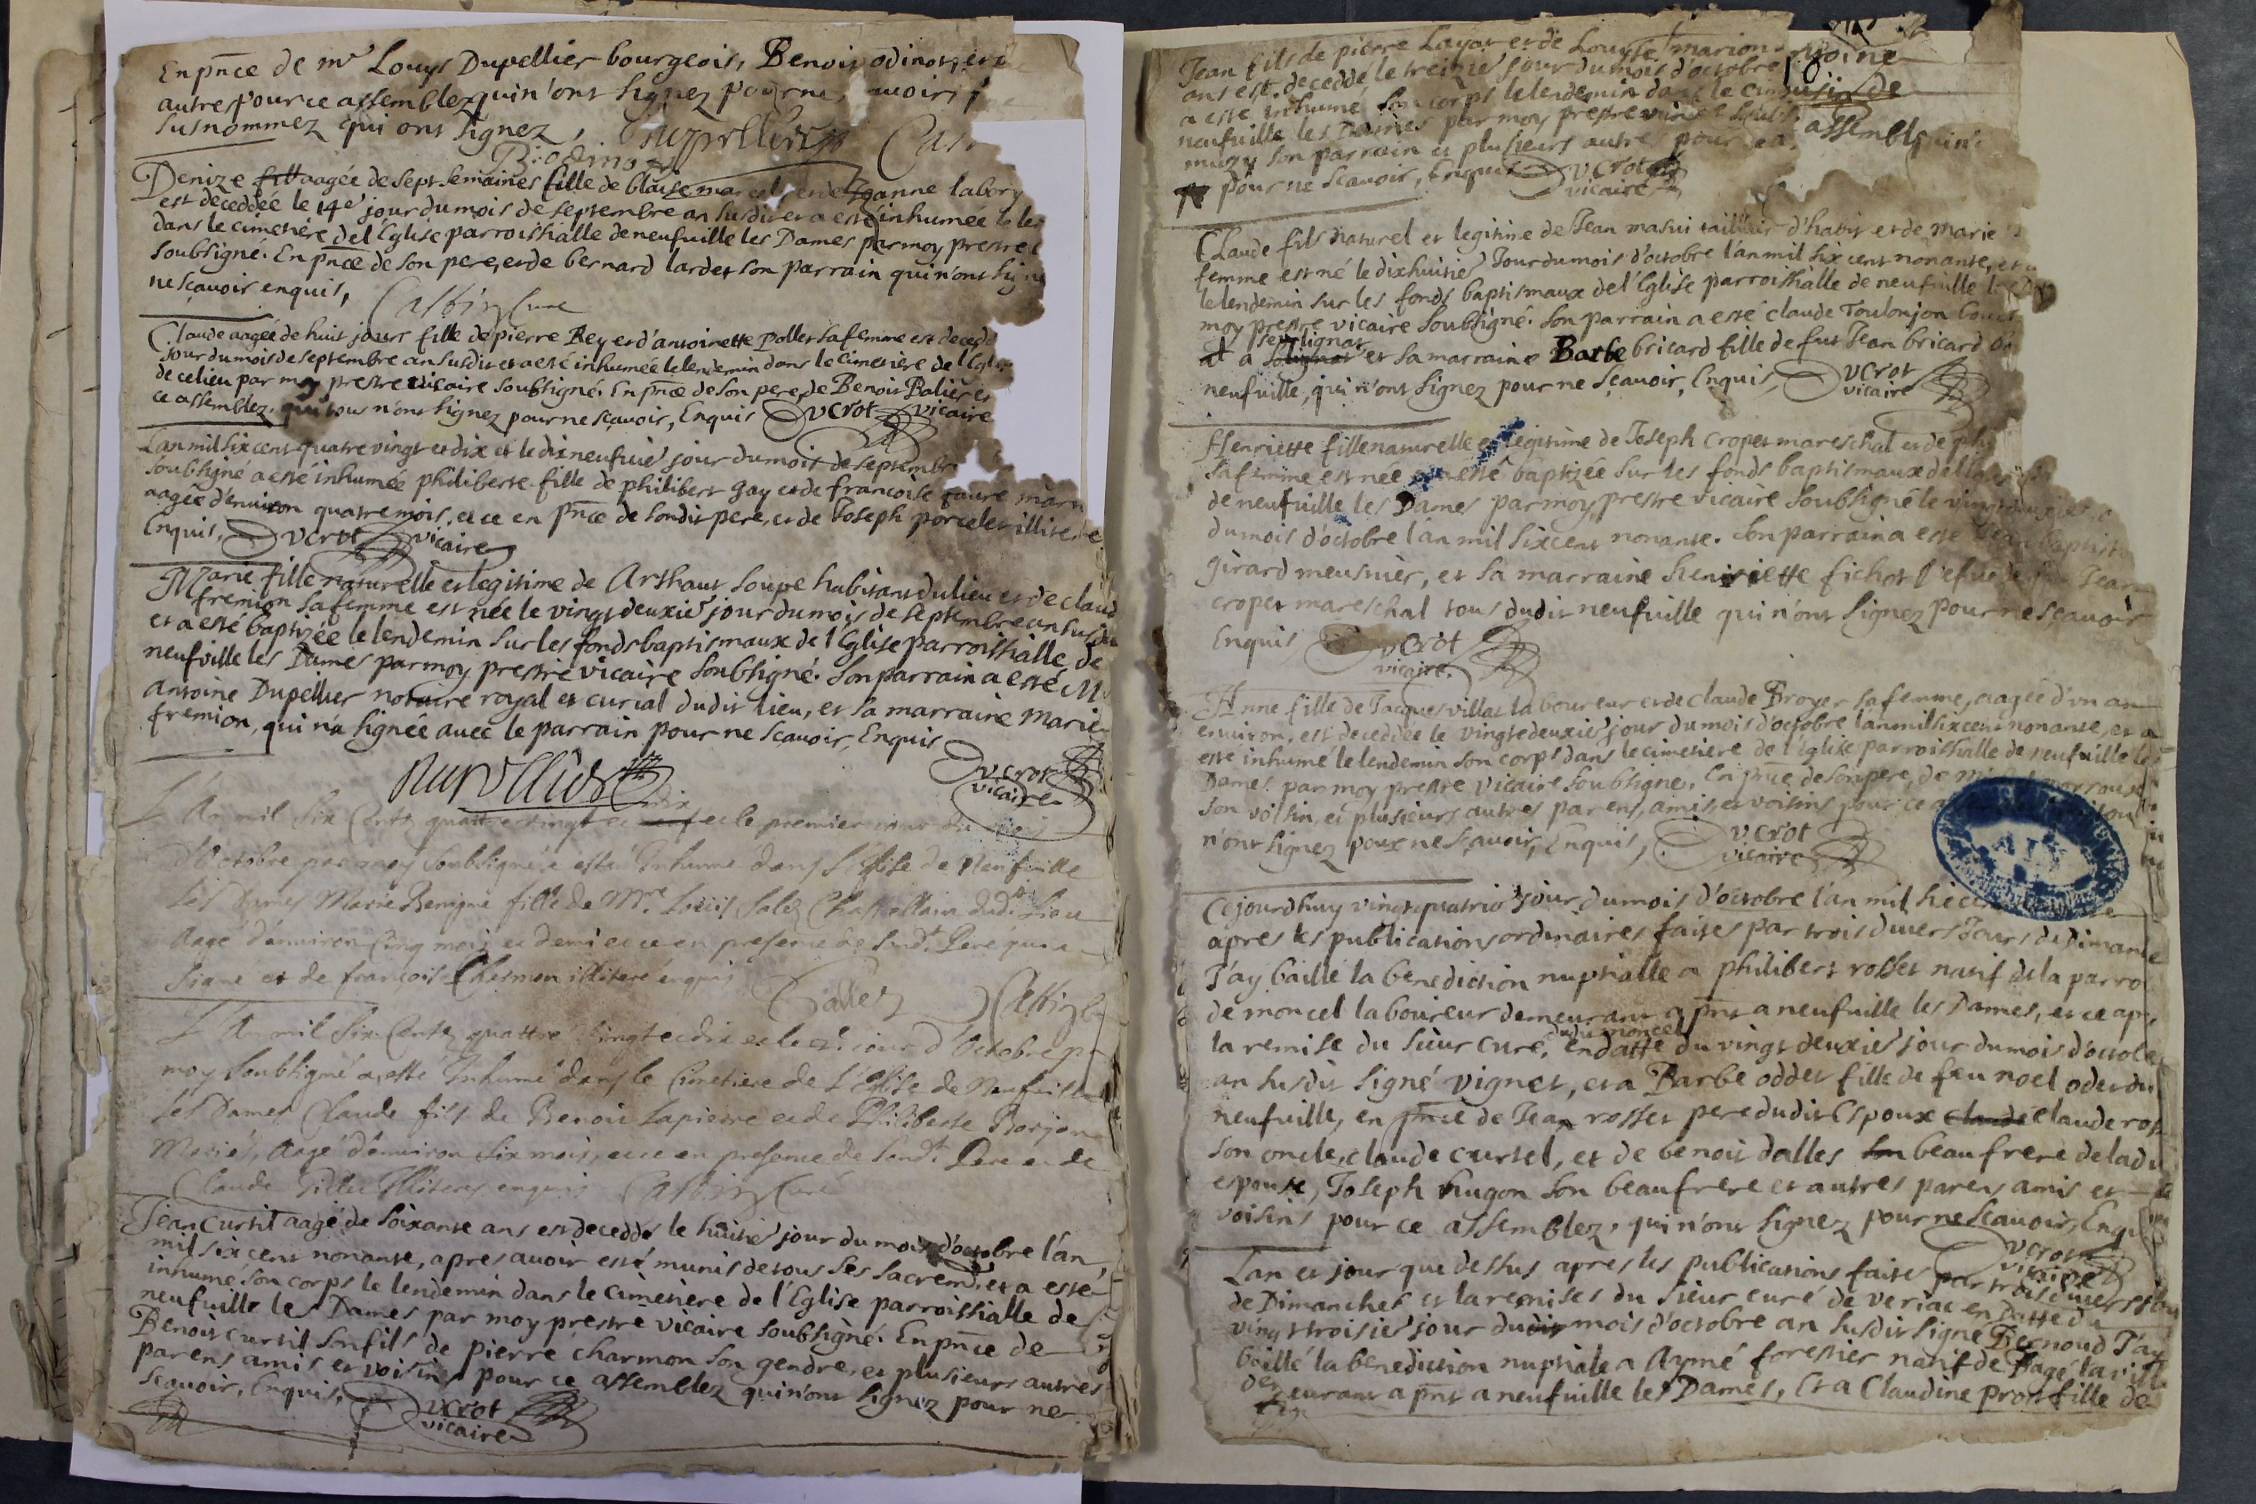 En pnce de mr Louys Dupellier bourgeois, Benoit odinot, et
autres pour ce assemblez qui n'ont signez pour ne
susnommez qui ont signez,
B odinot
Denize aagée de sept semaines fille de blaise et de Jeanne labory
est deceddée le 14e jour du mois de septembre an susdit et a esté inhumee le
dans le cimetiere del Eglise parroissialle de neufuille les Dames par moy prestre
soubsigné. En pnce de son pere, et de bernard lardet son parrain qui n'ont
ne sçauoir enquis, Castin Cure
Claude aagée de huit jours fille de pierre Rey et d'antoinette Pollet sa femme est deced
jour du mois de septembre an susdit et a esté inhumée le lendemin dans le Cimetiere de l'Eglise
de ce lieu par moy prestre vicaire soubsigné. En pnce de son pere, de Benoit Balier et
ce assemblez. qui tous n'ont signez pour ne sçauoir, Enquis Ducrot vicaire
Lan mil six cent quatre vingt et dix et le dixneufuie jour du mois de septembr
soubsigné a esté inhumée philiberte fille de philibert gay et de francoise faure
aagée d'enuiron quatre mois, et ce en pnce de sondit pere, et de Joseph porcelet
Enquis, Ducrot vicaire
Marie fille naturelle et legitime de Arthaut Soupe habitant du lieu et de claud
fremion sa femme est née le vingt deuxie jour du mois de septembre an susdit
et a esté baptizée le lendemin sur les fonds baptismaux de l'Eglise parroissialle de
neufuille les Dames par moy prestre vicaire soubsigné. Son parrain a esté
antoine Dupellier notaire royal et curial dudit lieu, et sa marraine Marie
fremion, qui n'a signée auec le parrain pour ne sçauoir, Enquis
Dupellier Ducrot
vicaire
L'An mil Six Cents quattre vingt et dix et le premier jour du mois
d'Octobre par moy soubsigné a esté Inhume dans l'Eglise de Neufuille
les Dames Marie Benigne fille de Mre Louis Salez Chastellain dudt. Lieu
Aagé d'enuiron Cinq mois et demi et ce en presence de sondt. Pere qui a
signe et de françois Charmon illiteré enquis Sallez Castin
L'An mil Six Cents quattre Vingt et dix et le jour d'Octobre par
moy soubsigné a esté Inhumé dans le Cimetiere de l'Eglise de Neufuille
les Dames Claude fils de Benoit Lapierre et de Philiberte Borjon
Mariés, Aagé d'enuiron six mois, et ce en presence de sondt. Pere et de
Claude enquis Castin Curé
Jean Curtil aagé de soixante ans est deceddé le huitie jour du mois d'octobre l'an
mil six cent nonante, apres auoir esté munis de tous ses sacrem, et a esté
inhumé son corps le lendemin dans le cimetiere de l'Eglise parroissialle de
neufuille les Dames par moy prestre vicaire soubsigné. En pnce de
Benoit Curtil son fils de pierre charmon son gendre, et plusieurs autres
parens amis et voisins pour ce assemblez qui n'ont signez pour ne
sçauoir, Enquis, Ducrot
vicaire
Jean fils de pierre Layat et de Louyse marion
ans est deceddé le treizie jour du mois d'octobre
a esté inhumé son corps le lendemin dans le
neufuille les Dames par moy prestre
son parrain et plusieurs autres pour assembl
pour ne sçauoir, Enquis Ducrot
vicaire
Claude fils naturel et legitime de Jean masui tailleur d'habit et de Marie
femme est né le dixhuitie Jour du mois d'octobre l'an mil six cent nonante, et
le lendemin sur les fonds baptismaux del'Eglise parroissialle de neufuille les
moy prestre vicaire soubsigné. Son parrain a esté claude Toulonjon
a et sa marraine Barbe bricard fille de fut Jean bricard
neufuille, qui n'ont signez pour ne sçauoir, Enquis Ducrot
vicaire
Henriette fille naturelle et legitime de Joseph Cropet mareschal et de
sa femme est née esté baptizée sur les fonds baptismaux de l'Eglise
de neufuille les Dames par moy prestre vicaire soubsigné le
du mois d'octobre l'an mil six cent nonante. Son parrain a esté Jean baptiste
girard meusnier, et sa marraine henriette fichot Jean
cropet mareschal tous dudit neufuille qui n'ont signez pour ne sçauoir
Enquis Ducrot
vicaire
Anne fille de Jacques villat laboureur et de claude Broyer sa femme, aagée d'vn an
enuiron, est deceddée le vingtedeuxie jour du mois d'octobre l'an mil six cent nonante, et a
esté inhumé le lendemin son corps dans le cimetiere de l'Eglise parroissialle de neufuille les
Dames par moy prestre vicaire soubsigné. En pnce de son pere, de
son voisin, et plusieurs autres parens, amis, et voisins pour ce
n'ont signez pour ne sçauoir, Enquis, Ducrot
vicaire
Cejourdhuy vingt quatrie jour du mois d'octobre l'an mil
apres les publications ordinaires faites par trois diuers Jours de Dimanche
J'ay baillé la benediction nuptialle a philibert rosset natif de la parro
de moncel laboureur demeurant a pnt a neufuille les Dames, et ce apres
dudit moncel
la remise du sieur curé, en datte du vingt deuxie jour du mois d'octobre
an susdit signé vignet, et a Barbe oddet fille de feu noel odet du
neufuille, en pnce de Jean rosset pere dudit Espoux claude ros
son oncle, claude curtel, et de benoit dalles beaufrere de ladi
espouse, Joseph hugon son beaufrere et autres parens amis et
voisins pour ce assemblez, qui n'ont signez pour ne scauoir, Enqui
Ducrot
vicaire
Lan et jour que dessus apres les publications faites par trois diuers
de Dimanches et la remises du sieur curé de veriac en Datte du
vingt troisie jour du mois d'octobre an susdit signé Bernoud J'ay
baillé la benediction nuptiale a Aymé forestier natif de Bagé la ville
demeurant a pnt a neufuille les Dames, Et a Claudine prost fille de